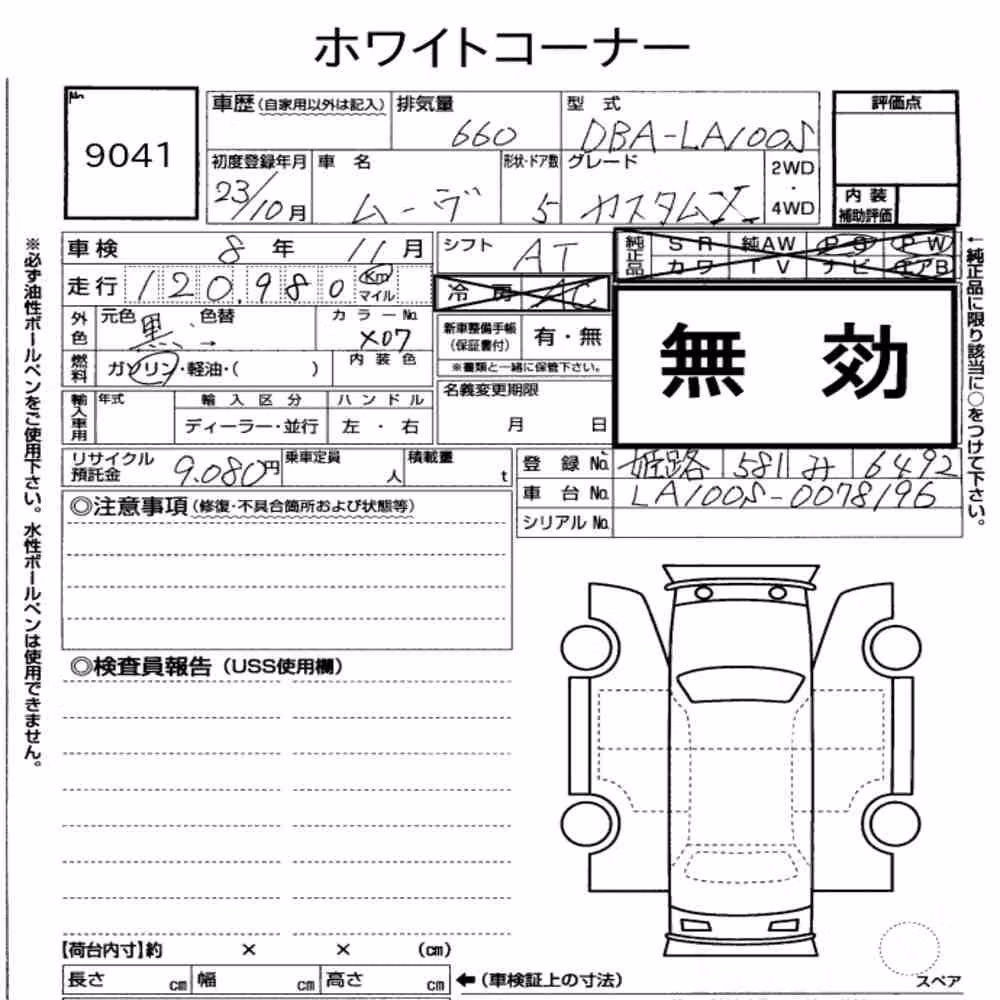 ホワイトコーナー
No.
9041
車歴(自家用以外は記入)
排気量
660
型 式
DBA-LA100S
評価点
初度登録年月
23/10月
車 名
ムーヴ
形状・ドア数
5
グレード
カスタムX
2WD
・
4WD
内 装
補助評価
車検 8年 11月
シフト
AT
純正品
SR 純AW PS PW
カワ TV ナビ エアB
走行 120,980 Km
マイル
冷房 AC
外色
元色 黒 色替 →
カラーNo.
X07
新車整備手帳
(保証書付)
有・無
※書類と一緒に保管下さい。
無 効
燃料
ガソリン・軽油・( )
内 装 色
輸入車用
年式
輸 入 区 分
ハ ン ド ル
ディーラー・並行
左 ・ 右
名義変更期限
月 日
リサイクル
預託金
9,080円
乗車定員
人
積載量
t
登 録 No. 姫路 581 み 6492
車 台 No. LA100S-0078196
シリアル No.
◎注意事項(修復・不具合箇所および状態等)
◎検査員報告(USS使用欄)
【荷台内寸】約 × × (cm)
長さ cm 幅 cm 高さ cm
←(車検証上の寸法)
スペア
※必ず油性ボールペンをご使用下さい。水性ボールペンは使用できません。
←純正品に限り該当に○をつけて下さい。